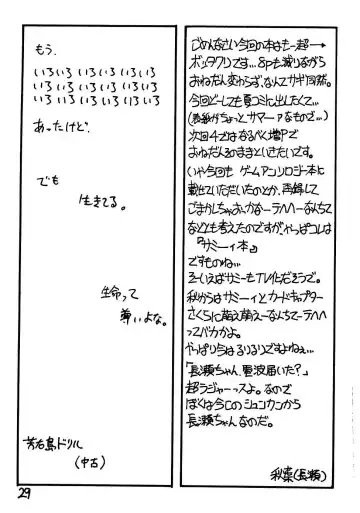 ごめんなさい今回の本はもー超→
ボッタクリです…8pも減りながら
おねだん変わらず、なんてサギ同然。
今回どーしても夏コミに出したくて…
(表紙がちょっとサマーァなもので…)
次回4ではなるべく増Pで
おねだんそのままといきたいです。
(いや今回も ゲームアンソロジー本に
載せていただいたのとか、再録して
ごまかしちゃおっかなーラハハーなんちて
なども考えたのですが、やっぱコレは
『サミーィ本』
ですものね…
そーいえばサミーもTV化だそうで。
秋からはサミーィとカードキャプター
さくらに萌え萌えーなんちてーラハハ
ってバカかよ。
やっぱり今はるりるりですよねぇ…
「長瀬ちゃん、電波届いた?」
超ラジャーっスよ。なので
ぼくは今このシュンカンから
長瀬ちゃんなのだ。
秋葉(長瀬)
もう、
いろいろ いろいろ いろいろ
いろいろ いろいろ いろいろ
いろいろ いろいろ いろいろ
あったけど、
でも
生きてる。
生命って
尊いよな。
ドリル
(中古)
29